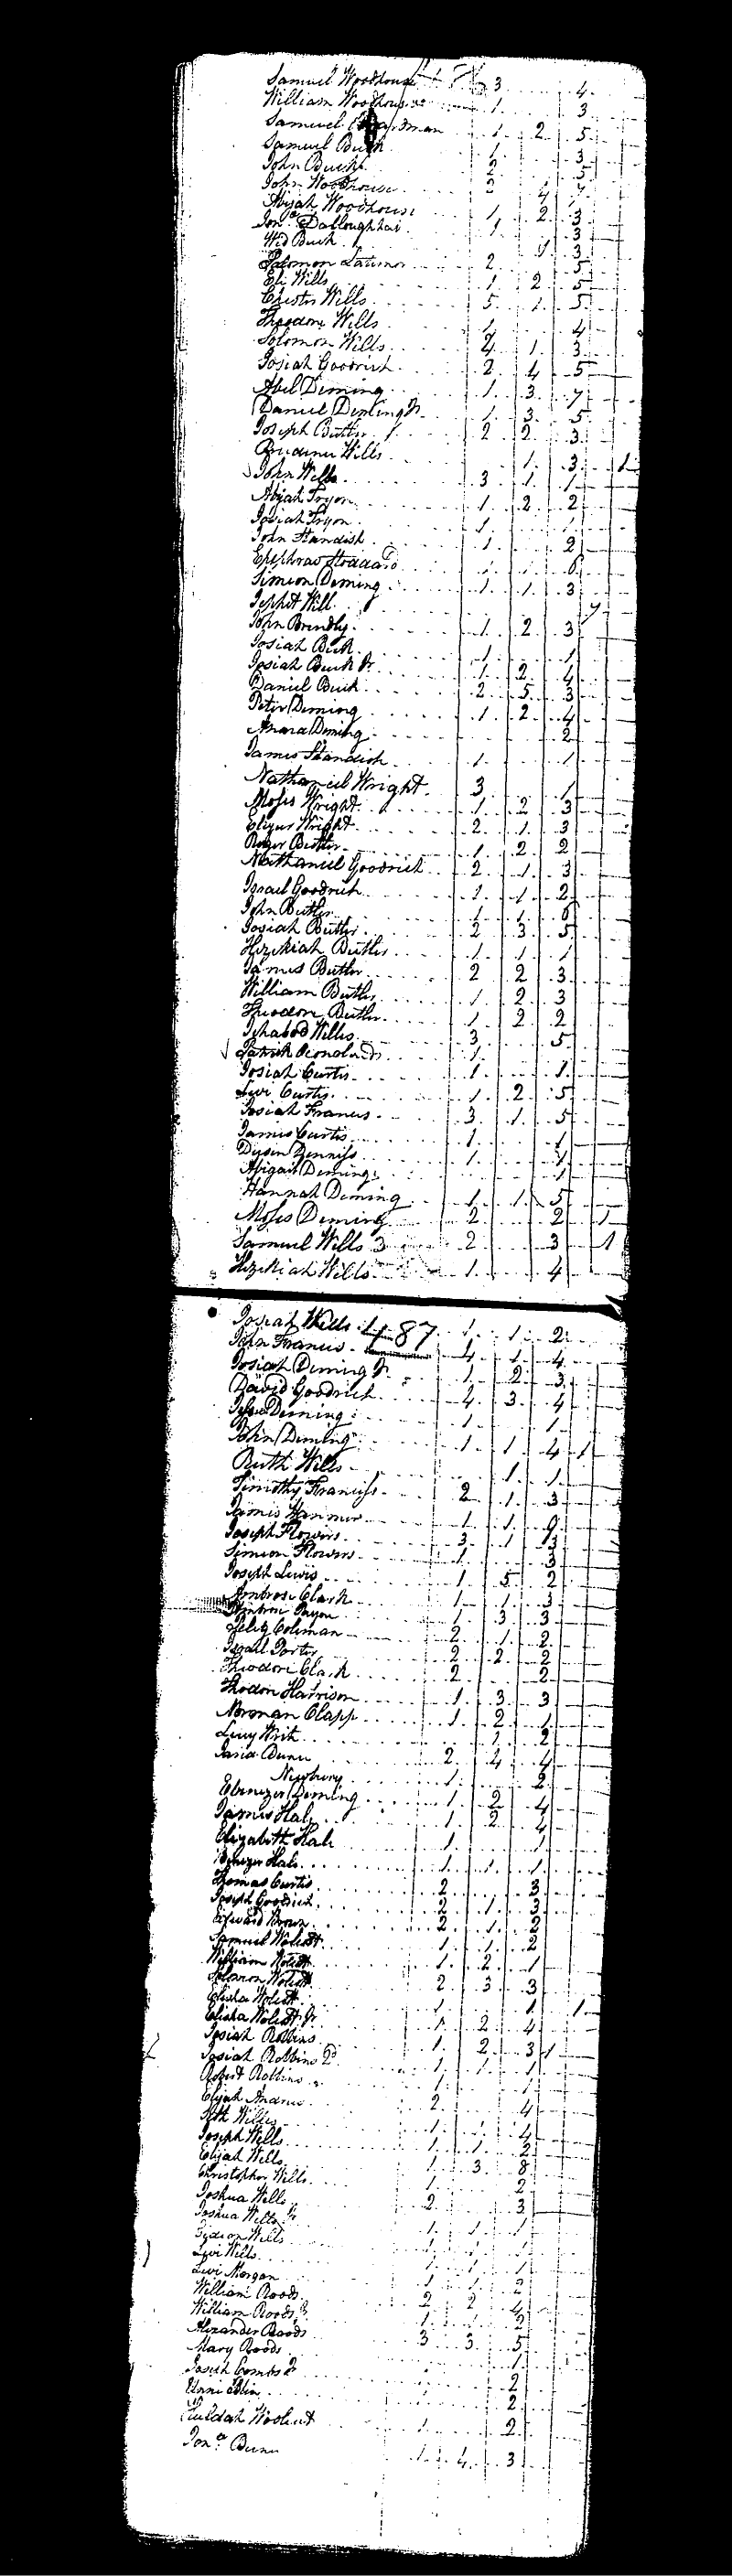 Samuel Woodhouse 3 4
William Woodhouse 1 3
Samuel 1 2 5
Samuel Buck 1 3
John Buck 2 5
John Woodhouse 2 4 7
Abijah Woodhouse 1 2 3
Jona. 1 3
Wid Buck 1 3
Solomon Latimor 2 5
Eli Wills 1 2 5
Chester Wills 5 1 5
Theodore Wills 1 4
Solomon Wills 2 1 3
Josiah Goodrich 2 4 5
Abel Deming 1 3 7
Daniel Deming Jr. 1 3 5
Joseph Butler 2 2 3
Prudence Wills 1 3 1
John Wills 3 1 1
Abijah Tryon 1 2 2
Josiah Tryon 1 1
John Standish 1 2
Stoddard 1 1 6
Simeon Deming 1 1 3
Will 7
John 1 2 3
Josiah Buck 1 1
Josiah Buck Jr. 1 2 4
Daniel Buck 2 5 3
Peter Deming 1 2 4
Deming 2
James Standish 1 1
Nathaniel Wright 3 1
Moses Wright 1 2 3
Elizur Wright 2 1 3
Roger Butler 1 2 2
Nathaniel Goodrich 2 1 3
Israel Goodrich 1 1 2
John Butler 1 1 6
Josiah Butler 2 3 5
Hezekiah Butler 1 1 1
James Butler 2 2 3
William Butler 1 2 3
Theodore Butler 1 2 2
Ichabod Willes 3 5
Patrick 1
Josiah Curtis 1 1
Levi Curtis 1 2 5
Josiah Francis 3 1 5
James Curtis 1 1
1 1
Abigail Deming 1
Hannah Deming 1 1 5
Moses Deming 2 2 1
Samuel Wills 3 2 3 1
Hezekiah Wills 1 4
Josiah Wills 1 1 2
487
John Francis 4 1 4
Josiah Deming Jr. 1 2 3
David Goodrich 4 3 4
Deming 1 1
John Deming 1 1 4 1
Ruth Wills 1 1
Timothy Francis 2 1 3
James Hanmer 1 1
Joseph Flowers 3 1 3
Simeon Flowers 1 3
Joseph Lewis 1 5 2
Ambrose Clark 1 1 3
1 3 3
Coleman 2 1 2
Israel Porter 2 2 2
Theodore Clark 2 2
Thodore Harrison 1 3 3
Norman Clapp 1 2 1
Lucy 1 2
2 4 4
Newbury 1 2
Ebenezer Deming 1 2 4
James Hale 1 2 4
Elizabeth Hale 1 1
Hale 1 1 1
Thomas Curtis 2 3
Joseph Goodrich 2 1 3
Edward Brown 2 1 2
Samuel Wolcott 1 1 2
William Wolcott 1 2 1
Solomon Wolcott 2 3 3
Elisha Wolcott 1 1 1
Elisha Wolcott Jr. 1 2 4
Josiah Robbins 1 2 3 1
Josiah Robbins 2d 1 1 1
Robert Robbins 1 1
Elijah Andrus 2 4
Wills 1 1 4
Joseph Wills 1 1 2
Elijah Wills 1 3 8
Christopher Wills 1 2
Joshua Wills 2 3
Joshua Wills Jr 1 1 1
Gideon Wills 1 1 1
Levi Wills 1 1 1
Levi Morgan 1 1 2
William Roods 2 2 4
William Roods Jr 1 1 2
Alexander Roods 3 3 5
Mary Roods 1
Josiah Combs 2
2
Huldah 1 2
Jona. Bunn 1 4 3